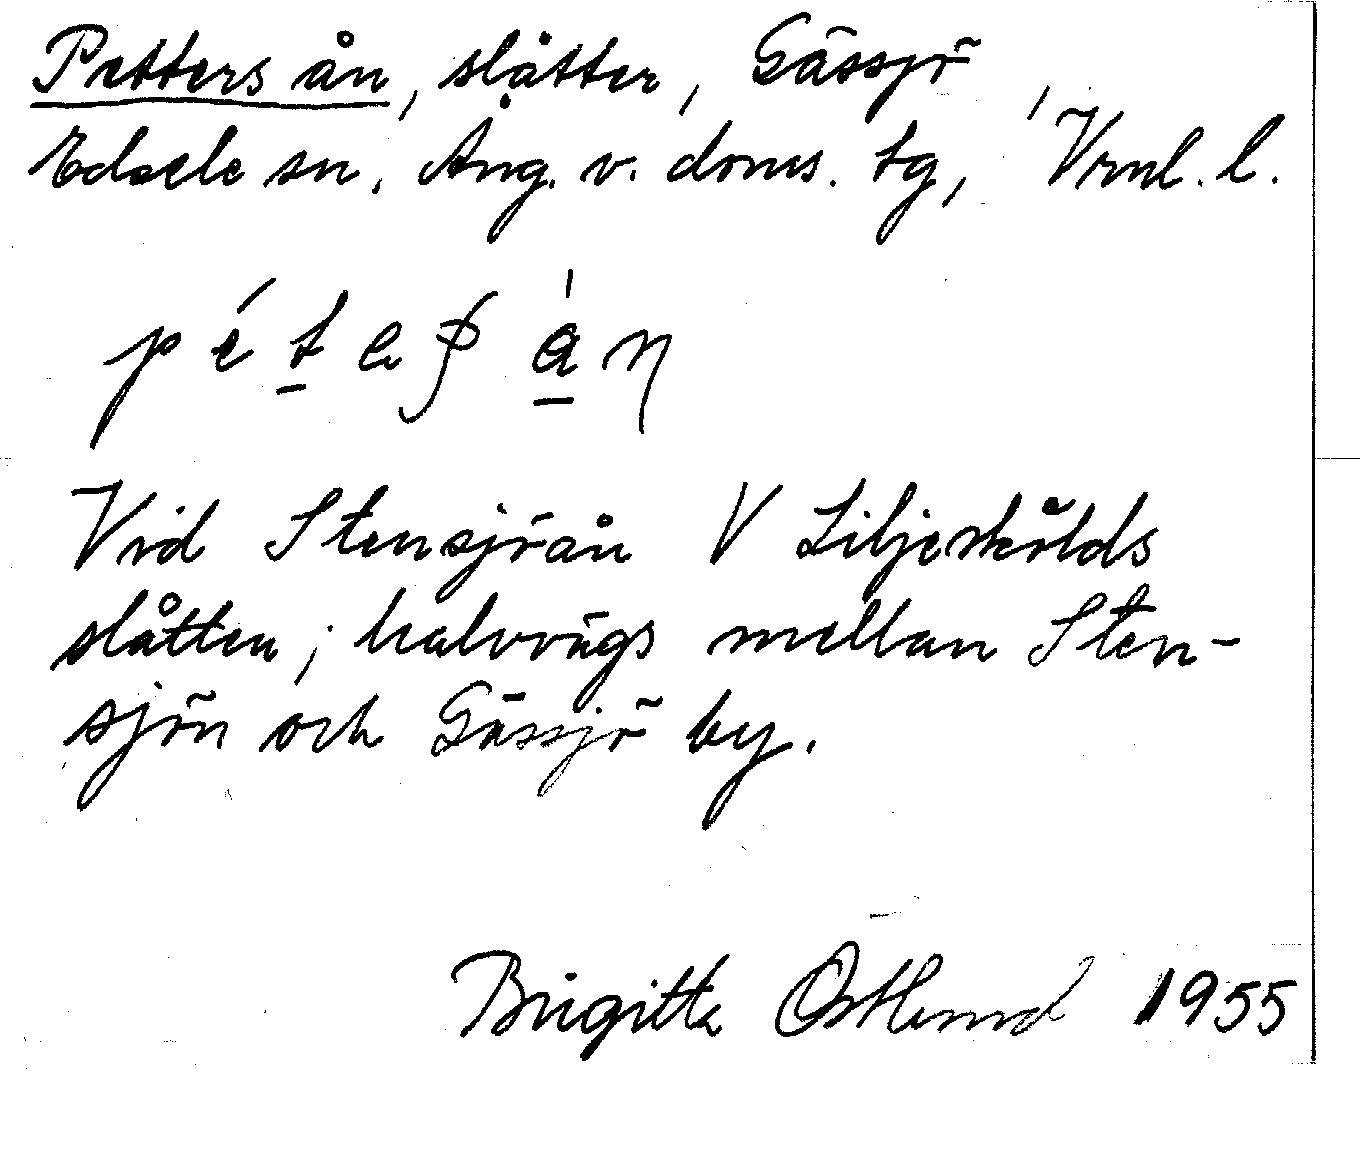 Petters ån, slåtter, Gässjö,
Edsele sn, Ång. v. doms. tg, Vrnl. l.
Vid Stensjöån V Liljeskölds
slåtten; halvvägs mellan Sten-
sjön och Gässjö by.
Birgitta Östlund 1955